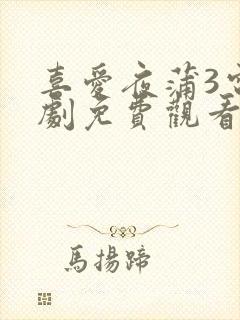 喜愛夜蒲3
劇免費觀看
馬揚蹄